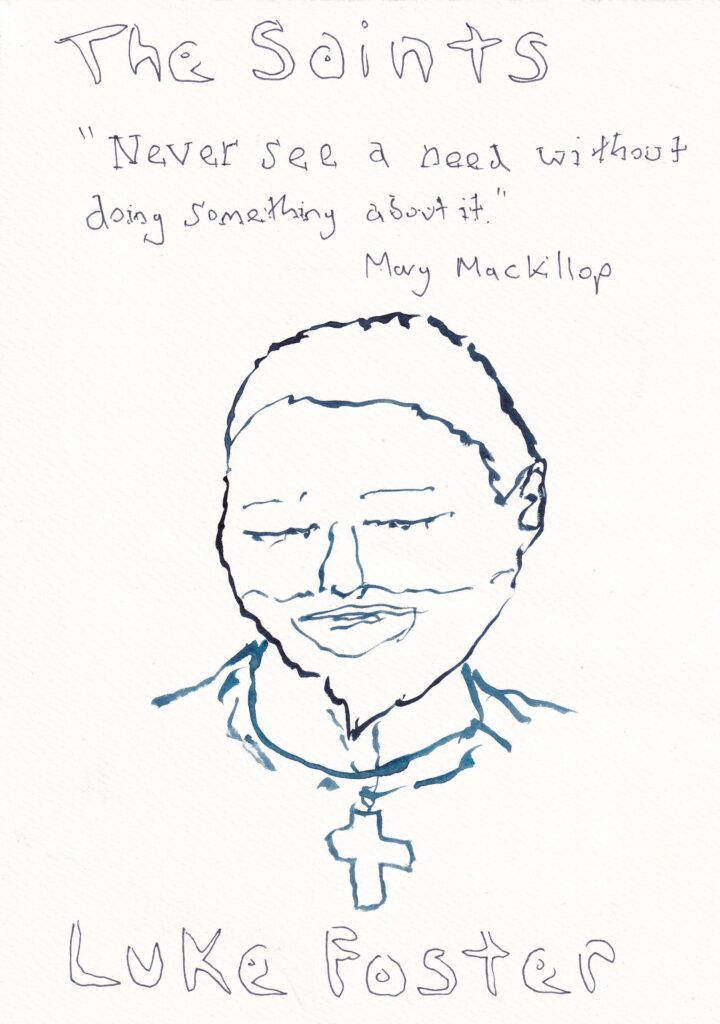 The Saints
"Never see a need without
doing something about it."
Mary Mackillop
Luke Foster